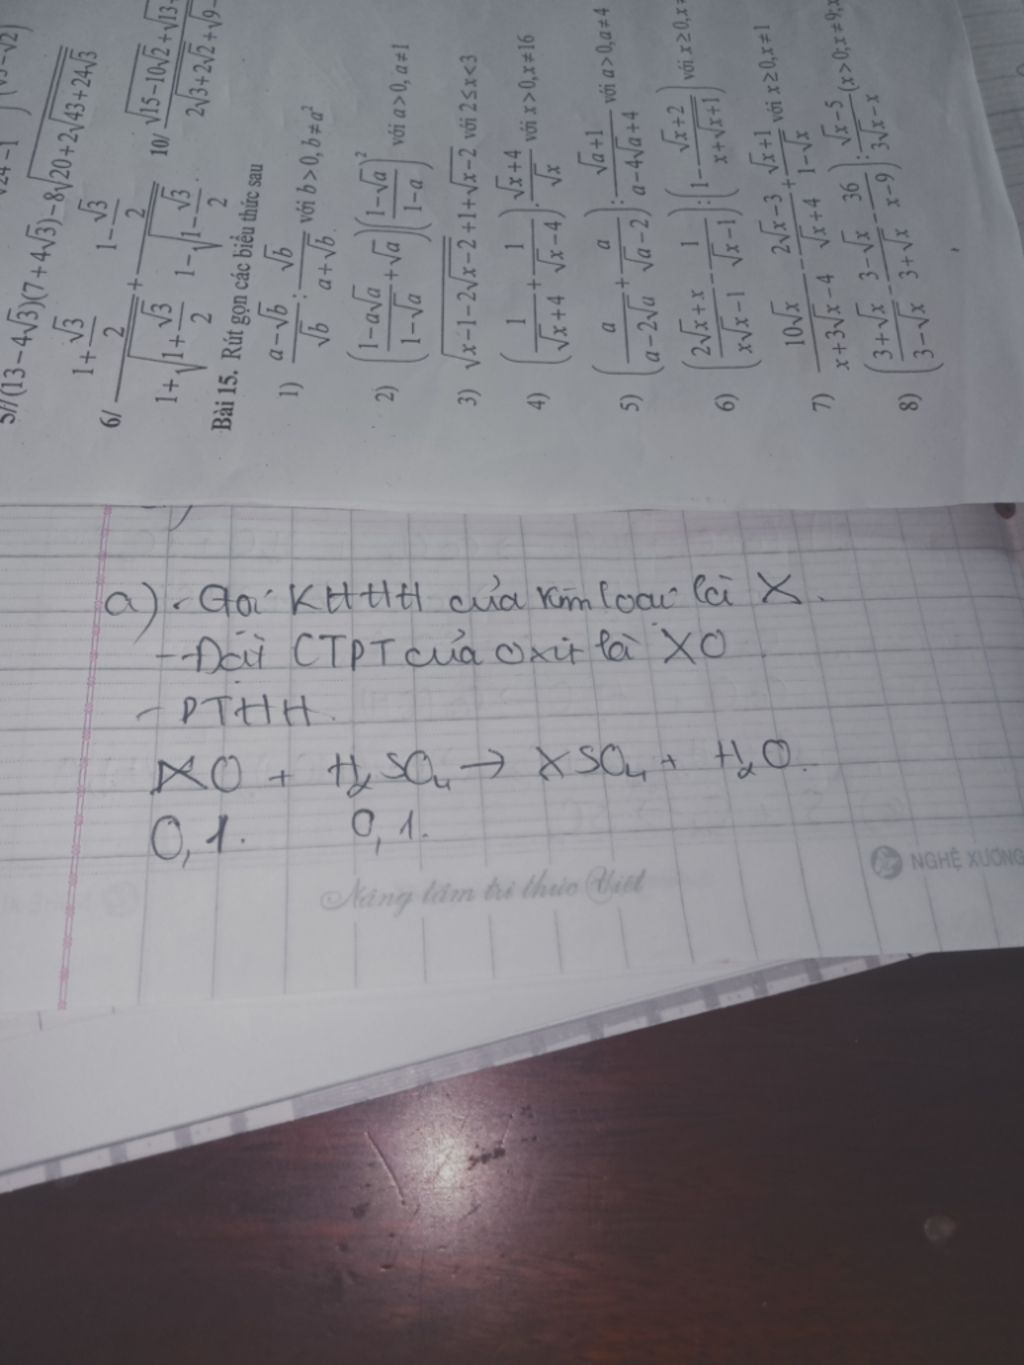 5//(13−4√3)(7+4√3)−8√(20+2√(43+24√3))
6/ (1+√3/2)/(1+√(1+√3/2)) + (1−√3/2)/(1−√(1−√3/2))
10/
Bài 15. Rút gọn các biểu thức sau
1) (a−√b)/√b : √b/(a+√b) với b>0, b≠a²
2) ((1−a√a)/(1−√a)+√a)((1−√a)/(1−a))² với a>0, a≠1
3) √(x−1−2√(x−2))+1+√(x−2) với 2≤x<3
4) (1/(√x+4)+1/(√x−4)).(√x+4)/√x với x>0,x≠16
5) (a/(a−2√a)+a/(√a−2)):(√a+1)/(a−4√a+4) với a>0,a≠4
6) ((2√x+x)/(x√x−1)−1/(√x−1)):(1−(√x+2)/(x+√x+1)) với x≥0,
7) 10√x/(x+3√x−4)−(2√x−3)/(√x+4)+(√x+1)/(1−√x) với x≥0,x≠1
8) ((3+√x)/(3−√x)−(3−√x)/(3+√x)−36/(x−9)):(√x−5)/(3√x−x) (x>0;x≠9;
a) - Gọi KHHH của kim loại là X.
- Đặt CTPT của oxit là XO
- PTHH
XO + H₂SO₄ → XSO₄ + H₂O.
0,1. 0,1.
Nâng tầm tri thức Việt
NGHỆ XƯƠNG